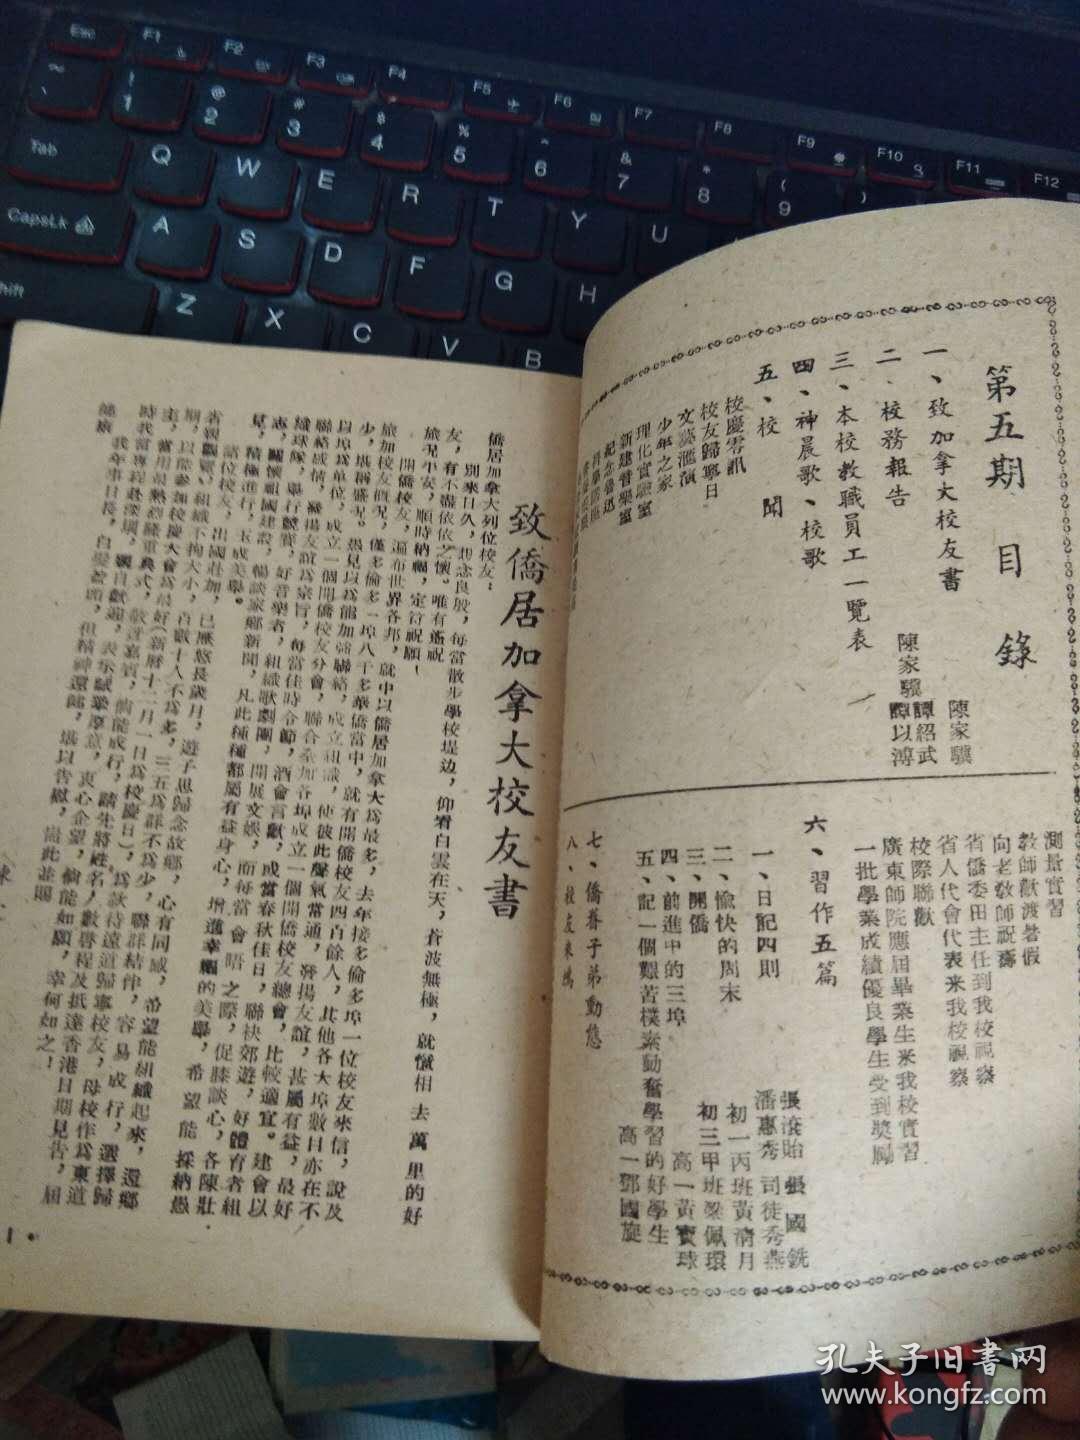 第五期 目錄
一、致加拿大校友書
陳家驥
二、校務報告
譚紹武
陳家驥 譚以溥
三、本校教職員工一覽表
四、神晨歌、校歌
五、校聞
校慶零訊
校友歸寧日
文藝滙演
少年之家
理化實驗室
新建音樂室
紀念魯迅
測量實習
教師歡渡暑假
向老敎師祝壽
省僑委田主任到我校視察
省人代會代表来我校視察
校際聯歡
廣東師院應屆畢業生来我校實習
一批學業成績優良學生受到奬勵
六、習作五篇
一、日記四則
張浓貽 張國銑
潘惠秀 司徒秀燕
二、愉快的周末
初一丙班黃清月
三、開僑
初三甲班梁佩環
四、前進中的三埠
高一黃寶球
五、記一個艱苦樸素勤奮學習的好學生
高一鄧國旋
七、僑眷子弟動態
八、校友来鴻
致僑居加拿大校友書
僑居加拿大列位校友：
別來日久，想念良殷，每當散步學校堤边，仰看白雲在天，蒼波無極，就慨相去萬里的好
友，有不盡依依之懷。唯有遙祝
旅况平安，順時納福，定符祝願！
開僑校友，遍布世界各邦，就中以僑居加拿大爲最多，去年接多倫多埠一位校友來信，說及
旅加校友概况，僅多倫多一埠八千多華僑當中，就有開僑校友四百餘人，其他各大埠數目亦在不
少，堪稱盛况。愚見以爲能加强聯絡，成立組織，使彼此聲氣常通，發揚友誼，甚屬有益，最好
以埠爲單位，成立一個開僑校友分會，聯合叅加各埠成立一個開僑校友總會，比較適宜。建會以
聯絡感情，發揚友誼爲宗旨，每當佳時令節，酒會言歡，或當春秋佳日，聯袂郊遊，好體育者組
織球隊，舉行競賽，好音樂者，組織歌劇團，開展文娛，而每當會晤之際，促膝談心，各陳壯
志，關懷祖國建設，暢談家鄉新聞，凡此種種都屬有益身心，增進幸福的美舉，希望能採納愚
見，積極進行，玉成美舉。
諸位校友，出國壯加，已歷悠長歲月，遊子思歸念故鄉，心有同感，希望能組織起來，還鄉
省親觀覽，組織不拘大小，百數十人不爲多，三五爲群不爲少，聯群結伴，容易成行，選擇歸
期，以能參加校慶大會爲最好（新曆十二月一日爲校慶日），爲款待遠道歸寧校友，母校作爲東道
主，當用最熱烈隆重典式，歡迎嘉賓，倘能成行，請先將姓名，人數啓程及抵達香港日期見告，屆
時我當專程赴深圳，親自歡迎，表示誠摯厚意，衷心企望，倘能如願，幸何如之！
我年事日長，白髮盈頭，但精神還健，堪以告慰，耑此並賜
1
孔夫子旧書网
www.kongfz.com